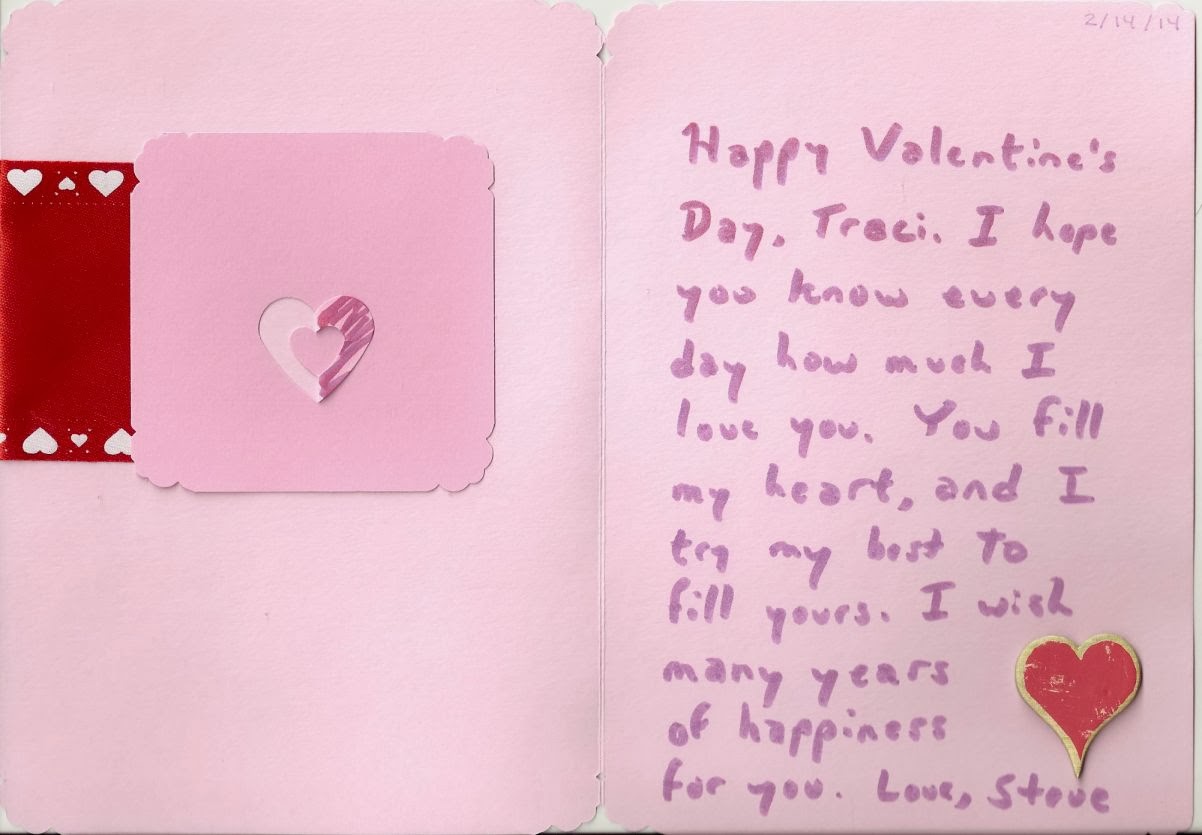 2/14/14
Happy Valentine's
Day, Traci. I hope
you know every
day how much I
love you. You fill
my heart, and I
try my best to
fill yours. I wish
many years
of happiness
for you. Love, Steve